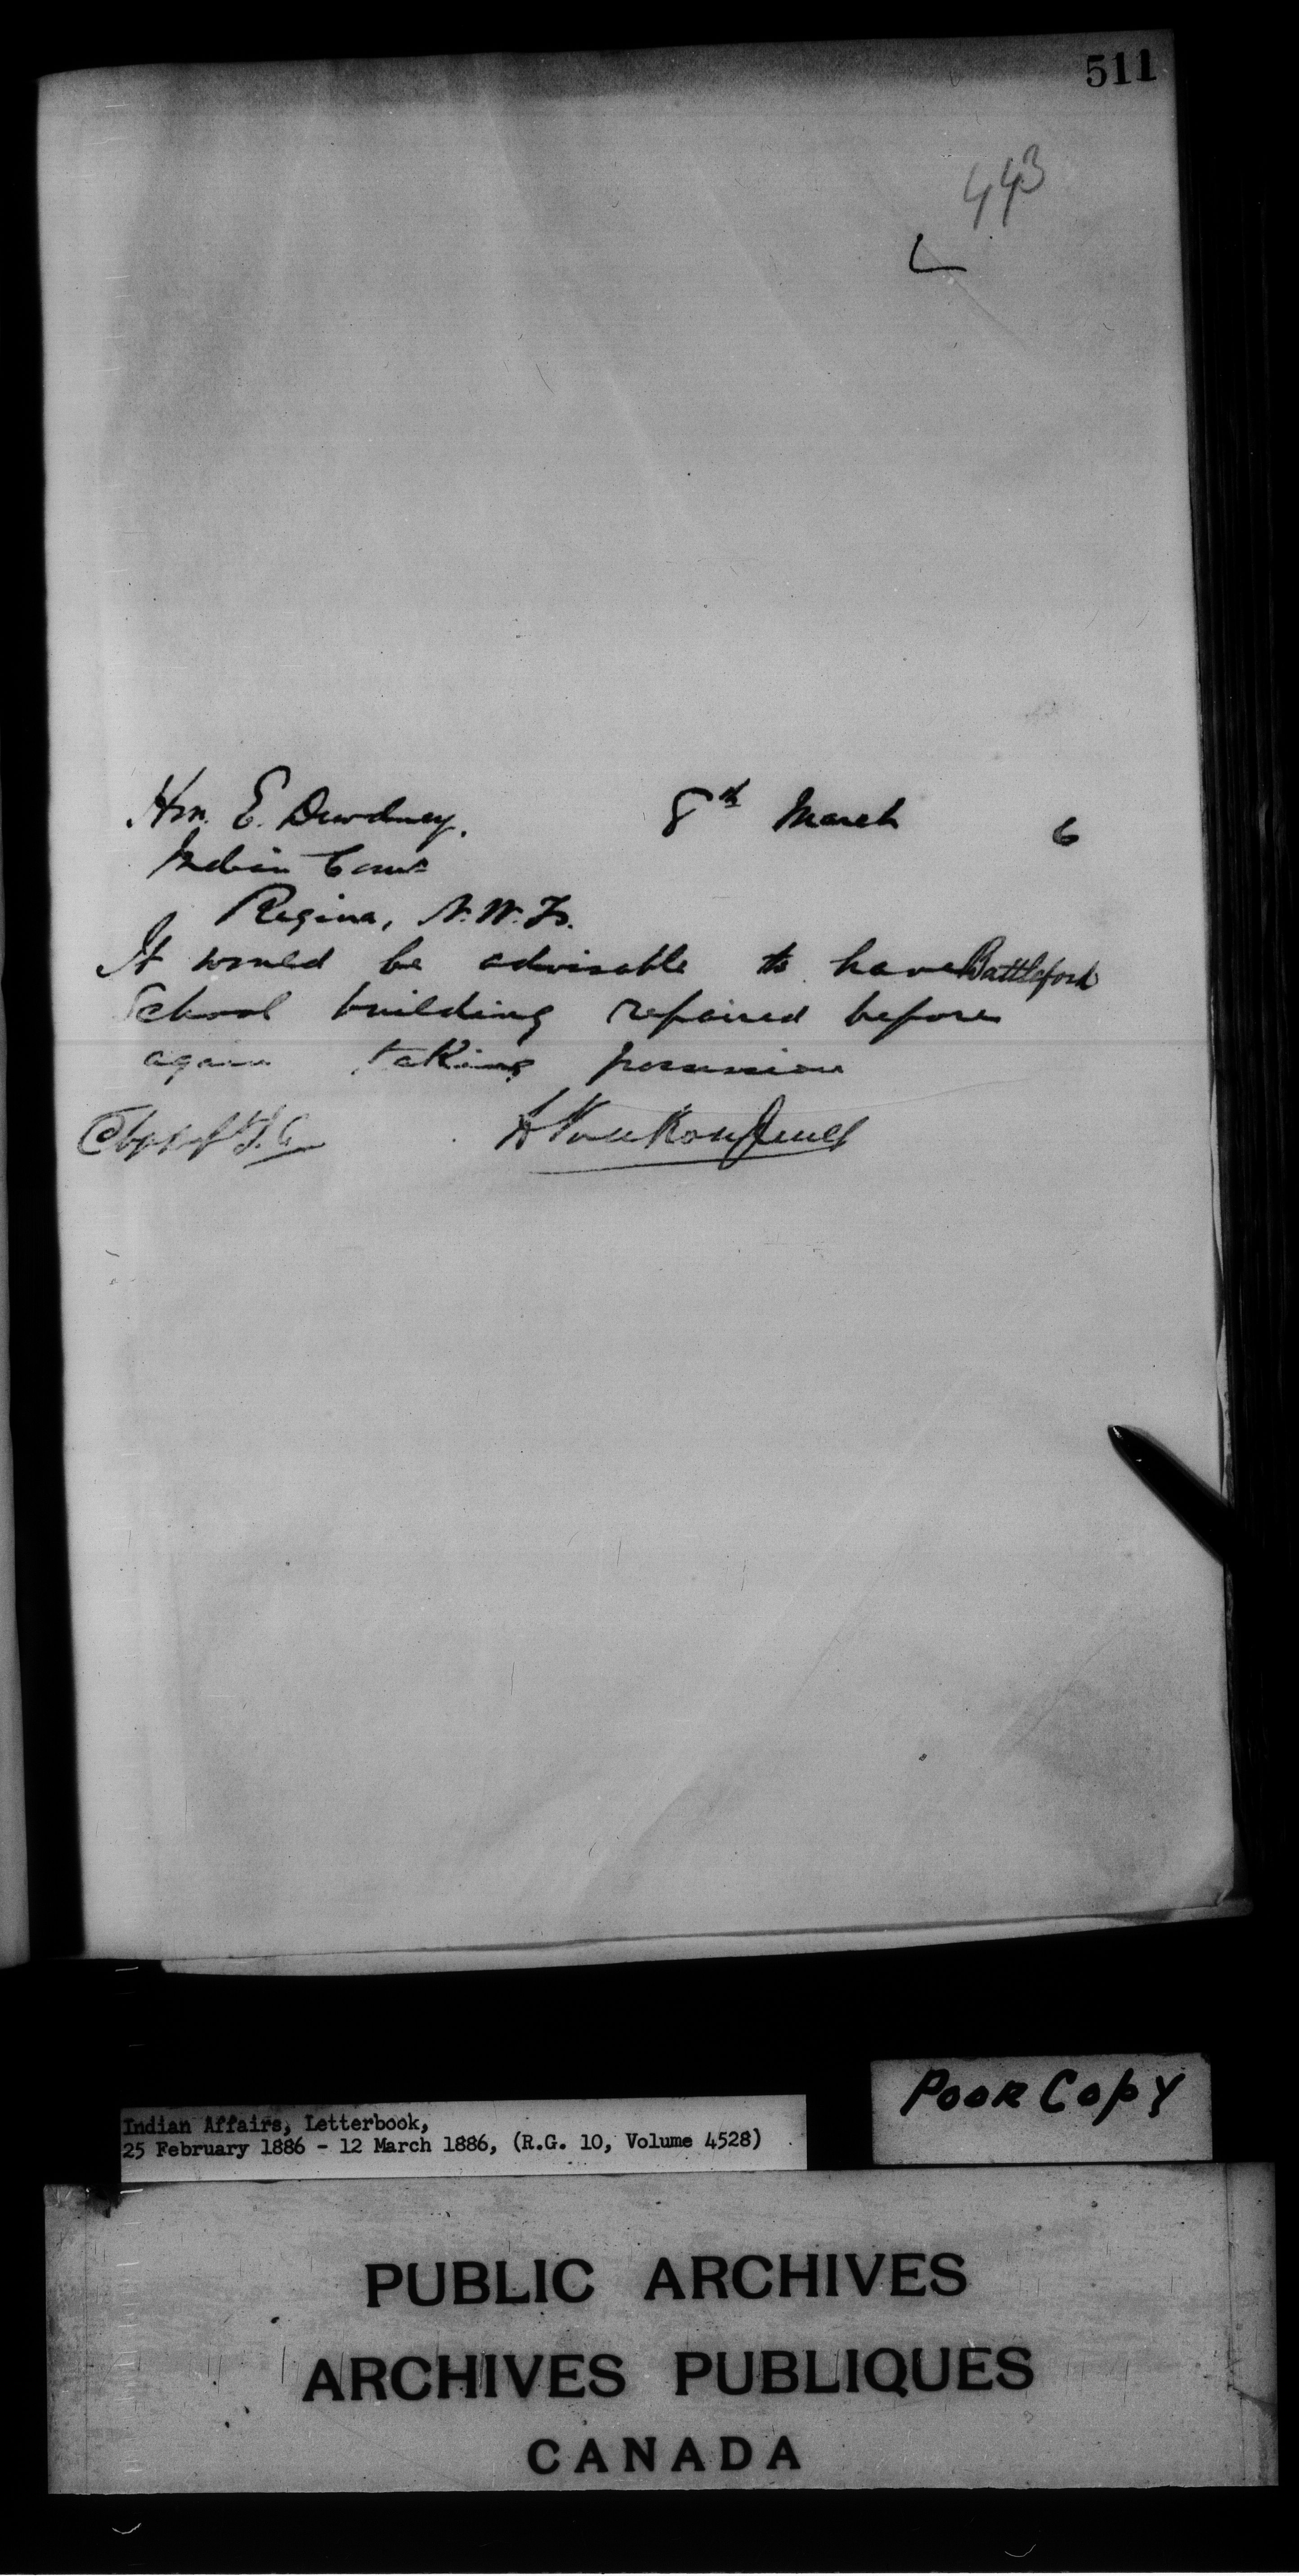 511
443
L
Hon. E. Dewdney. 8th March 6
Indian Comr
Regina, N.W.T.
It would be advisable to have Battleford
School building repaired before
again taking possession
L VanKoughnet
Indian Affairs, Letterbook,
25 February 1886 - 12 March 1886, (R.G. 10, Volume 4528)
POOR COPY
PUBLIC ARCHIVES
ARCHIVES PUBLIQUES
CANADA